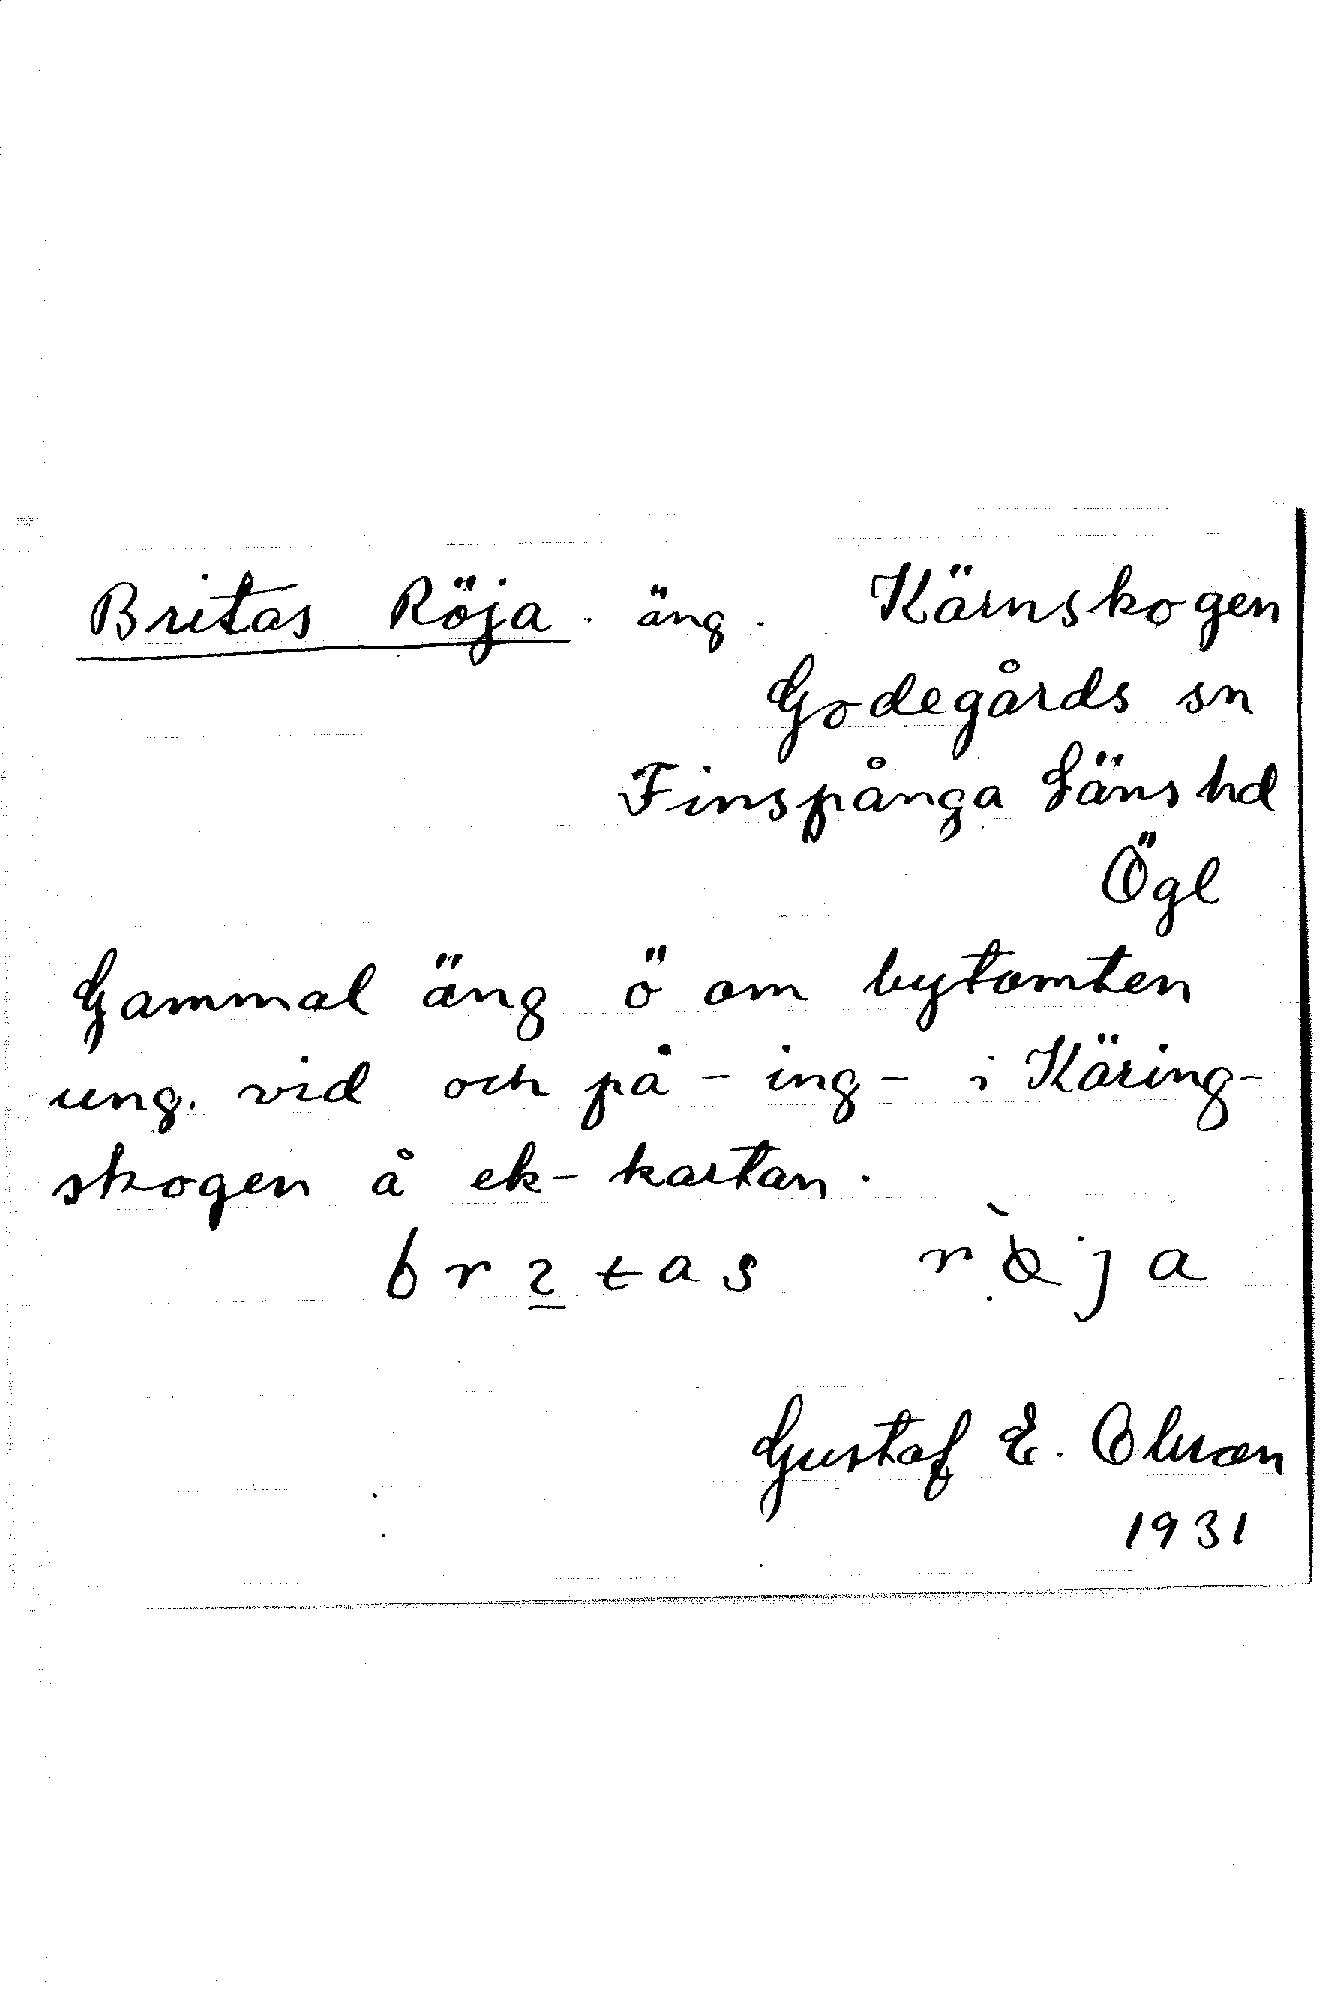 Britas Röja. äng. Kärnskogen
Godegårds sn
Finspånga Läns hd
Ögl
Gammal äng ö om bytomten
ung. vid och på - ing - i Käring-
skogen å ek-kartan.
britas röja
Gustaf E. Olsson
1931